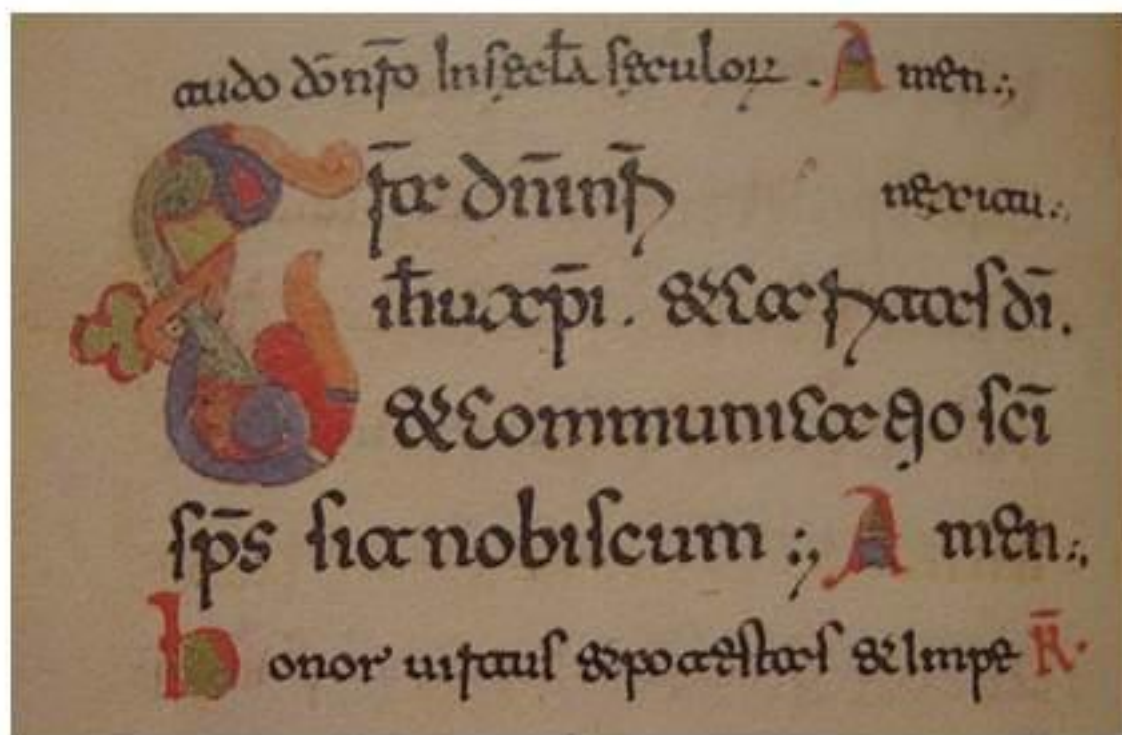 tudo dō nr̄o In sec̄la seculoꝝ . Amen.:,
Gr̄a dn̄i nr̄i
ih̄u xp̄i . & caritas dī.
& communicatio sc̄i
sp̄s sit nobiscum :, Amen.:,
honor uirtus & potestas & Impe R̄.